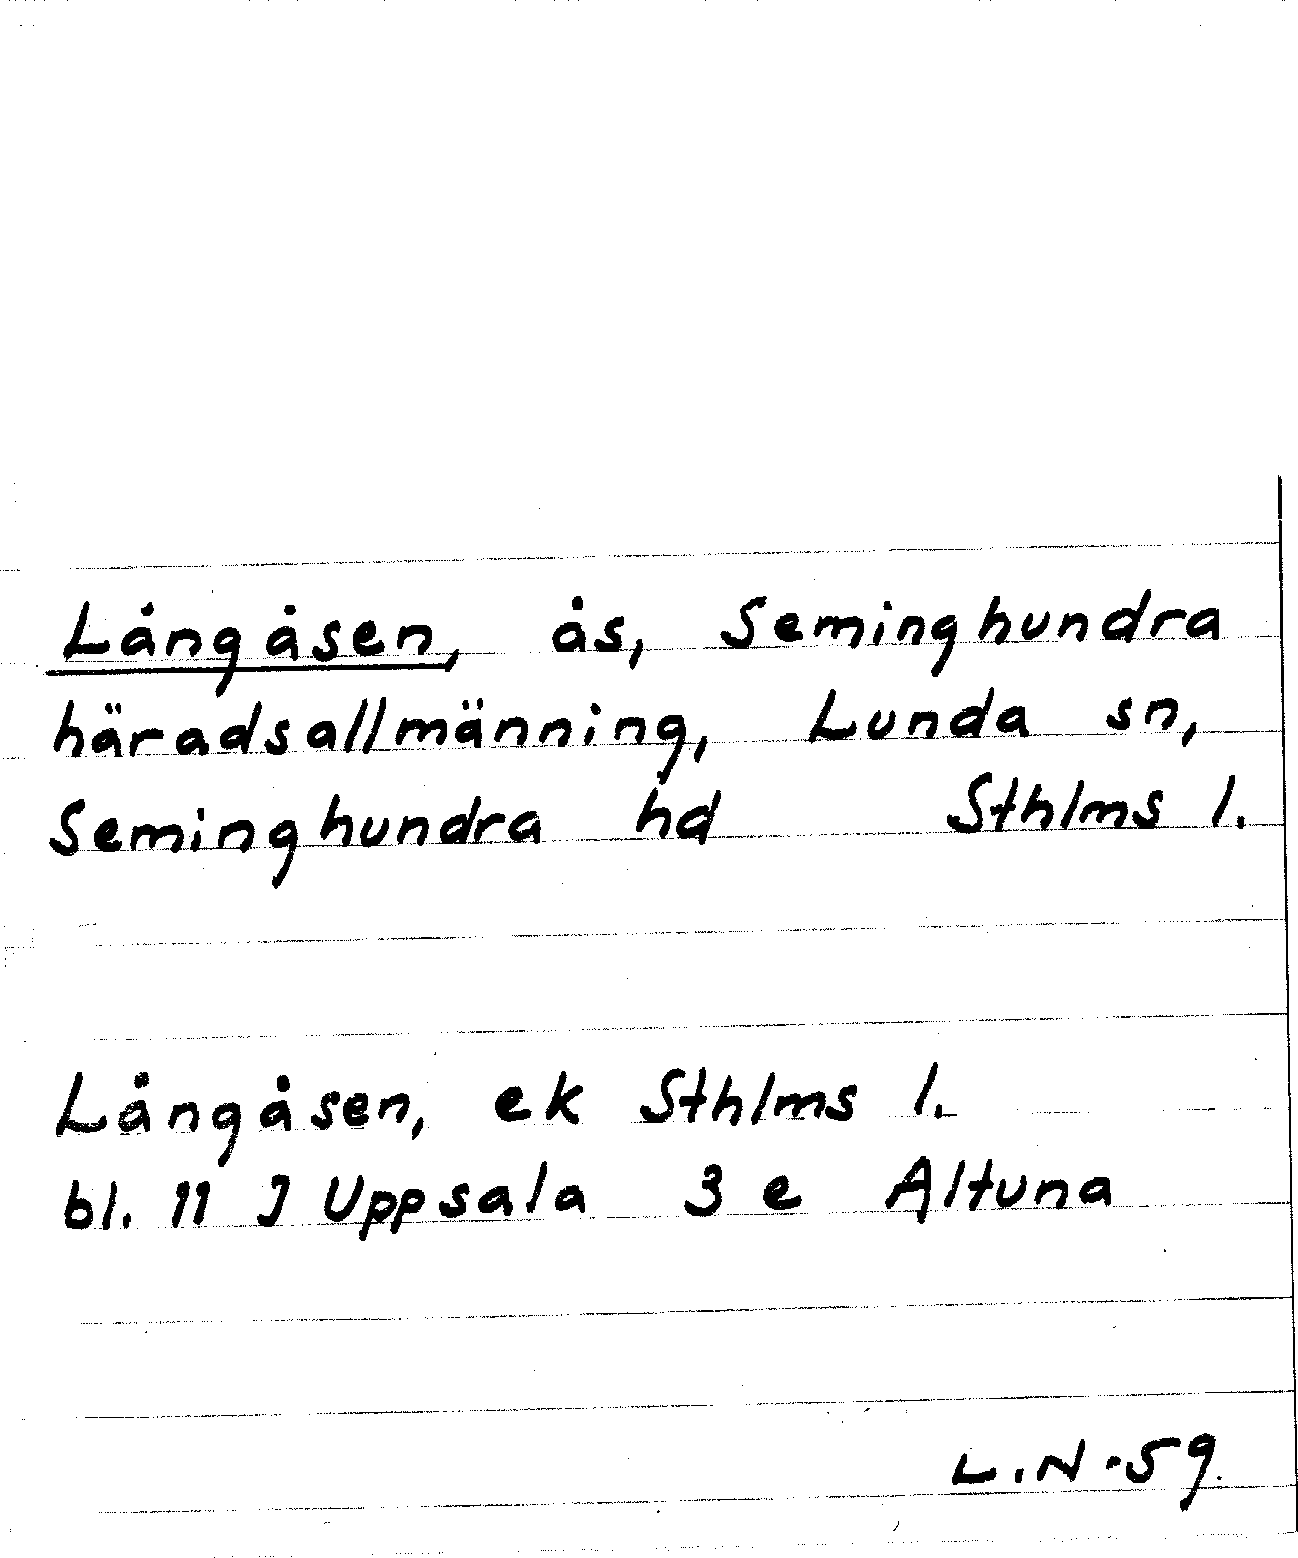 Långåsen, ås, Seminghundra
häradsallmänning, Lunda sn,
Seminghundra hd Sthlms l.
Långåsen, ek Sthlms l.
bl. 11 J Uppsala 3 e Altuna
L.N-59.